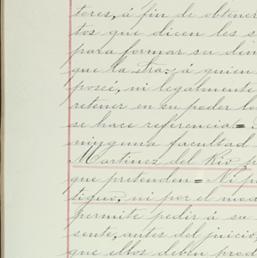 teres, á fin de obtener
tos que dicen les s
para formar su dem
que la Sra: á quien
posée, ni legalmente
retener en su poder lo
se hace referencia =
ninguna facultad
Martinez del Rio p
que pretenden = Ni p
tiguo, ni por el mod
permite pedir á su
sente, antes del juicio,
que ellos deben prod